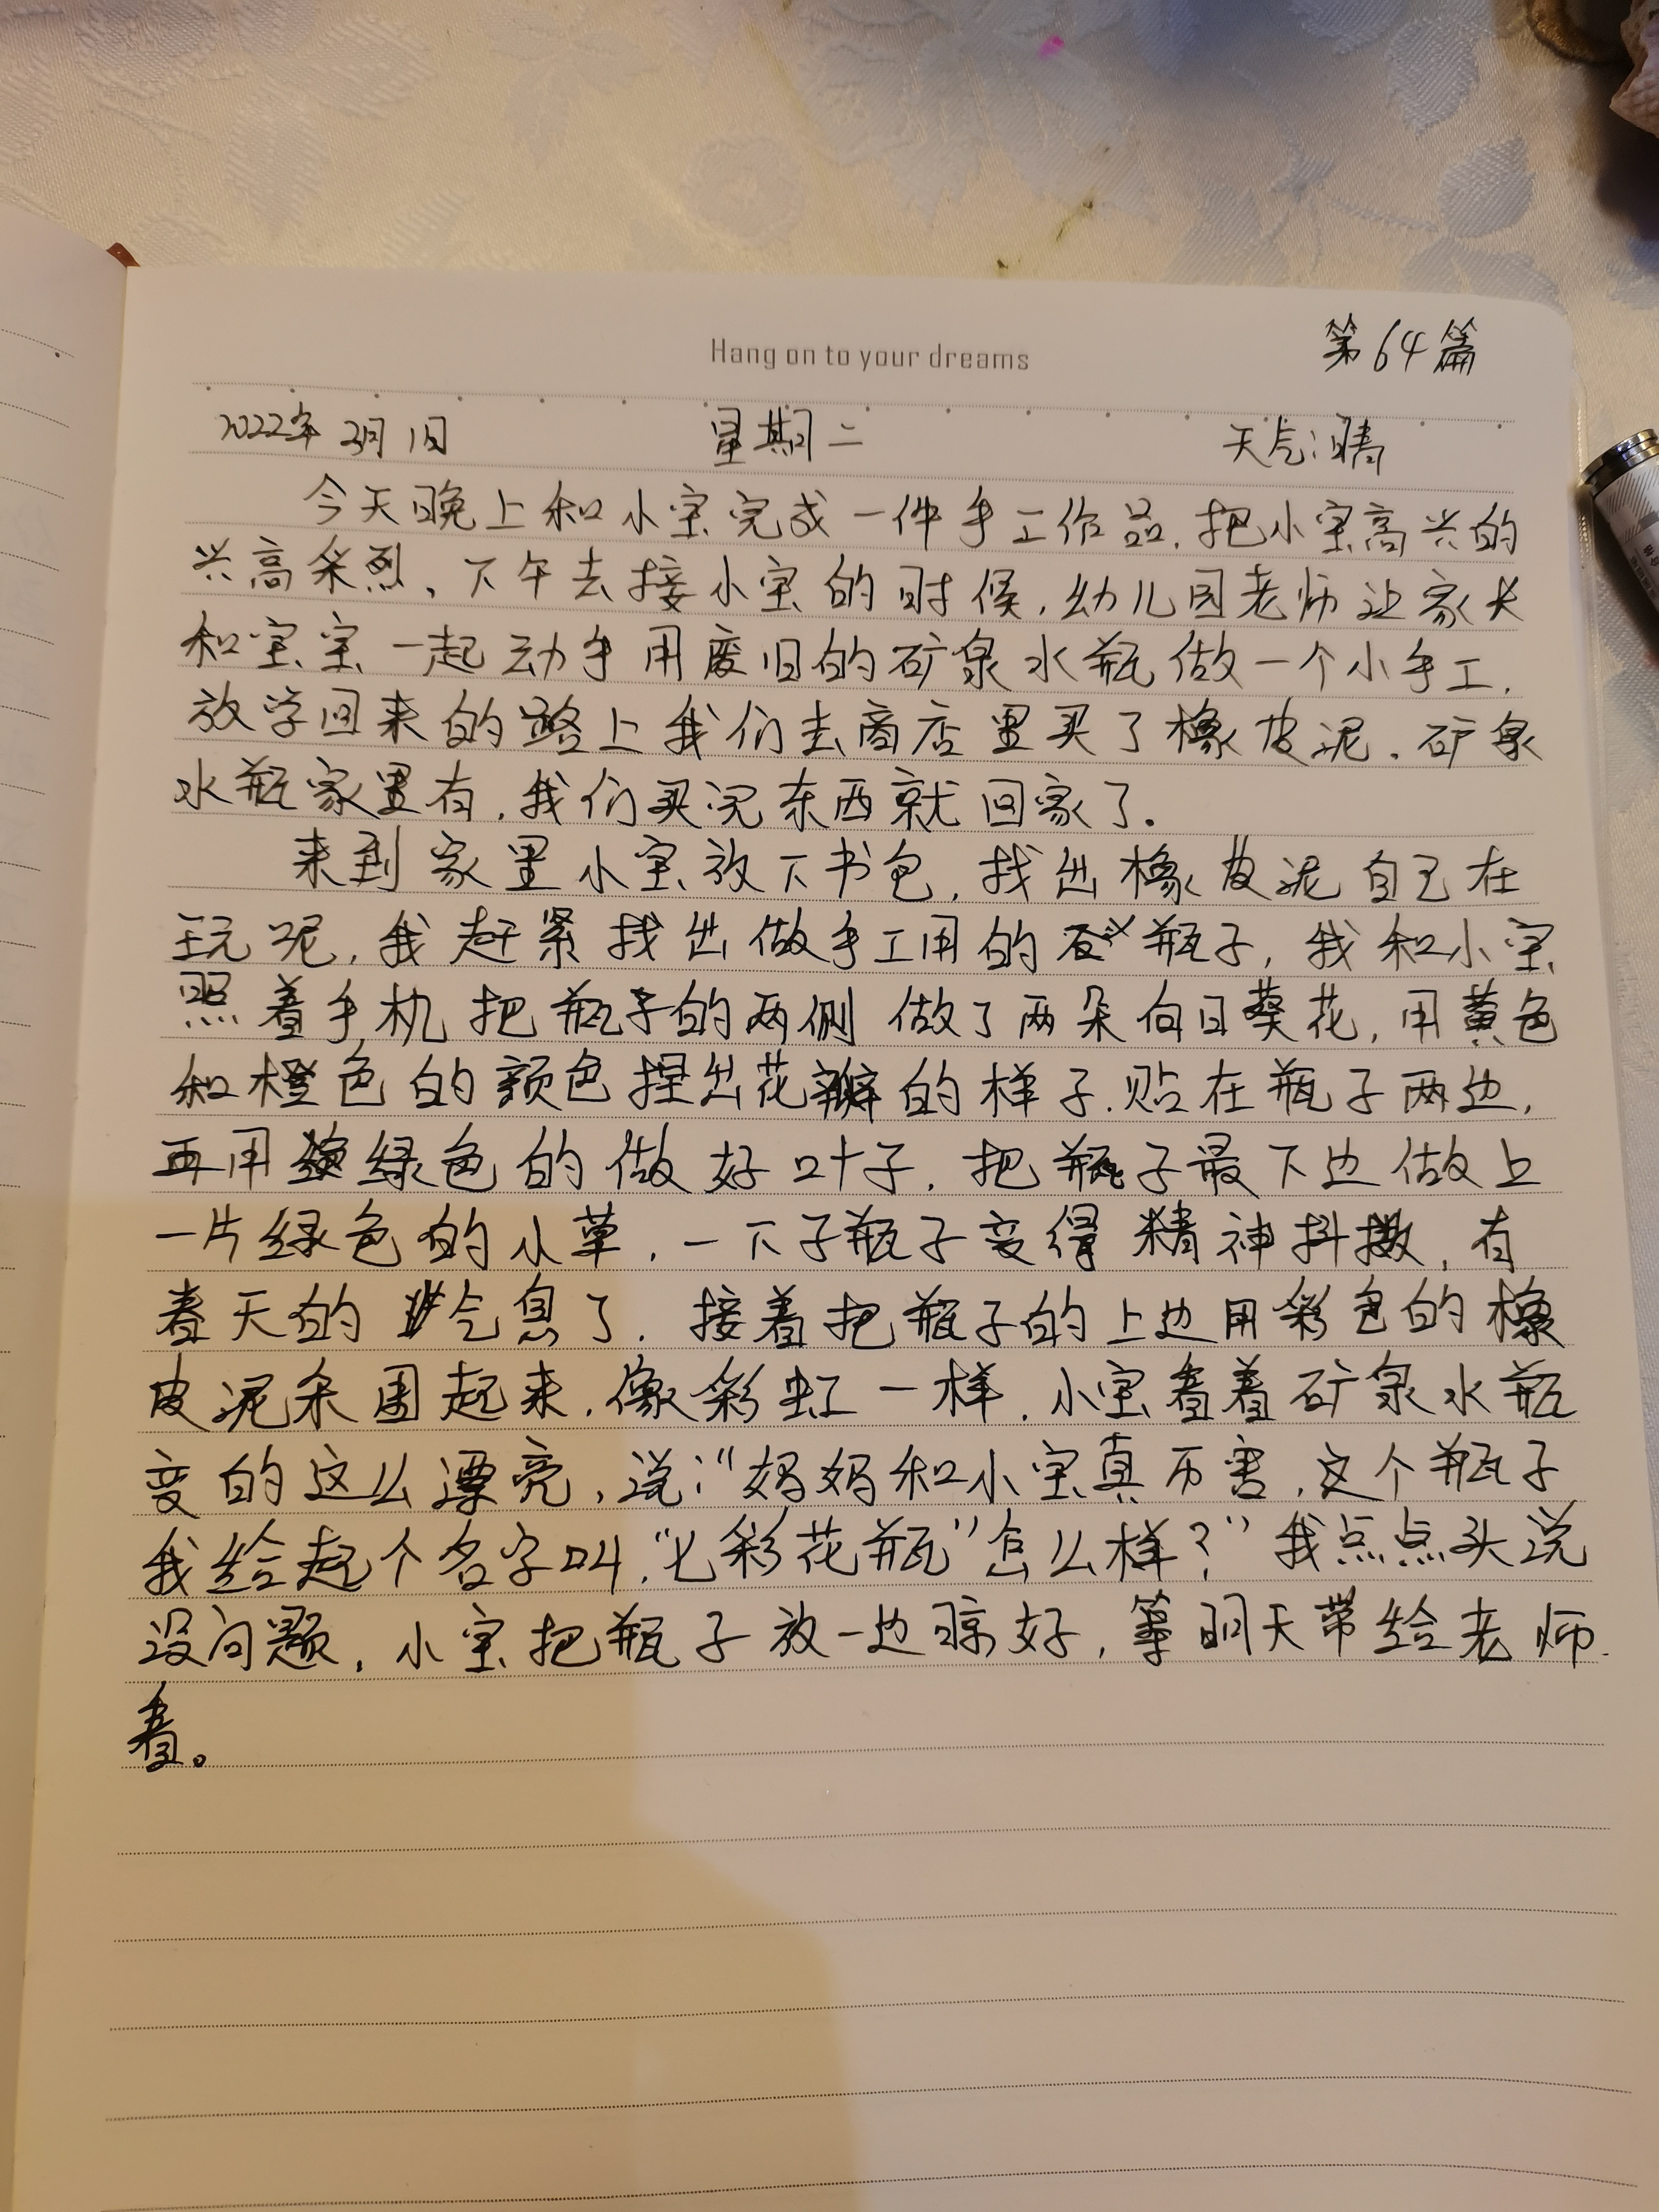 Hang on to your dreams
第64篇
2022年3月1日 星期二 天气:晴
今天晚上和小宝完成一件手工作品,把小宝高兴的
兴高采烈、下午去接小宝的时候,幼儿园老师让家长
和宝宝一起动手用废旧的矿泉水瓶做一个小手工,
放学回来的路上我们去商店里买了橡皮泥,矿泉
水瓶家里有,我们买完东西就回家了。
来到家里小宝放下书包,找出橡皮泥自己在
玩泥,我赶紧找出做手工用的瓶子,我和小宝
照着手机把瓶子的两侧做了两朵向日葵花,用黄色
和橙色的颜色捏出花瓣的样子.贴在瓶子两边,
再用绿色的做好叶子,把瓶子最下边做上
一片绿色的小草,一下子瓶子变得精神抖擞,有
春天的气息了.接着把瓶子的上边用彩色的橡
皮泥围起来,像彩虹一样,小宝看着矿泉水瓶
变的这么漂亮,说:“妈妈和小宝真厉害,这个瓶子
我给起个名字叫,“七彩花瓶”怎么样?”我点点头说
没问题,小宝把瓶子放一边晾好,等明天带给老师
看。